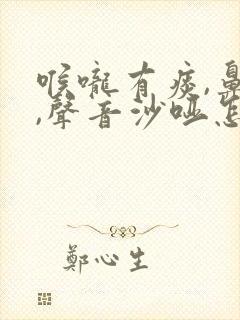 喉嚨有痰,鼻
,聲音沙啞怎
鄭心生